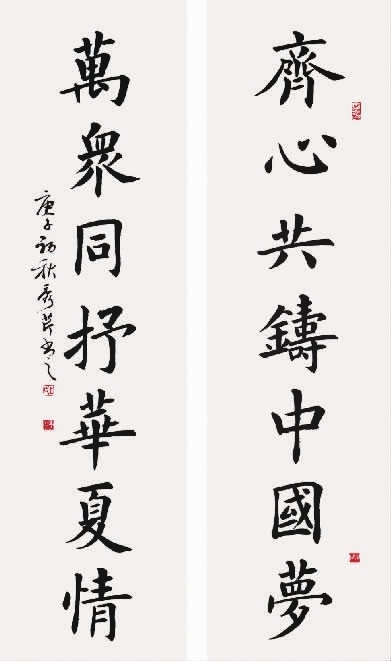 齊心共鑄中國夢
萬眾同抒華夏情
庚子初秋秀芹書之